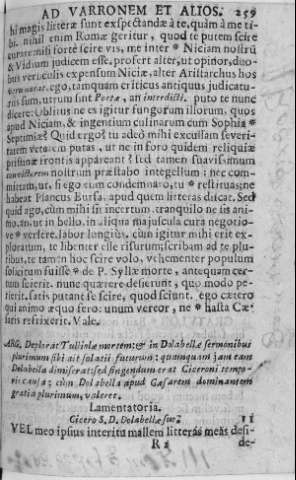 AD VARRONEM ET ALIOS. 259
hi magis litteræ sunt exspectandæ à te, quàm à me ti-
bi. nihil enim Romæ geritur, quod te putem scire
curare nisi fortè scire vis, me inter * Niciam nostrũ
& Vidium judicem esse. profert alter, ut opinor, duo-
bus versiculis expensum Niciæ, alter Aristarchus hos
ego, tamquam criticus antiquus judicatu-
rus sum, utrum sint an interdicti. puto te nunc
dicere: Oblitus ne es igitur fungorum illorum, quos
apud Niciam, & ingentium culinarum cum Sophia *
Septimiæ? Quid ergo? tu adeò mihi excussam severi-
tatem veterem putas, ut ne in foro quidem reliquiæ
pristinæ frontis appareant? sed tamen suavissimum
nostrum præstabo integellum: nec com-
mittam, ut, si ego eum condemnaro, tu * restituas: ne
habeat Plancus Bursa, apud quem litteras discat. Sed
quid ago, cùm mihi sit incertum, tranquilo ne sis ani-
mo, an, ut in bello, in aliqua majuscula cura negotio-
ve * versere, labor longiùs, cùm igitur mihi erit ex-
ploratum, te libenter esse risurum, scribam ad te plu-
ribus, te tamen hoc scire volo, vehementer populum
solicitum fuisse * de P. Syllæ morte, antequam cer-
tum scierit. nunc quærere desierunt, quo modo pe-
rierit. satis putant se scire, quod sciunt. ego cætero
qui animo æquo fero: unum vereor, ne * hasta Cæ-
saris refrixerit. Vale.
ARG. Deplorat Tulliolæ mortem: & in Dolabellæ sermonibus
plurimum sibi ait solatii futurum: quamquam jam eam
Dolabella dimiserat: sed fingendum erat Ciceroni tempo-
ris causa; cùm Dolabella apud Cæsarem dominantem
gratia plurimum valeret.
Lamentatoria.
Cicero S. D. Dolabellæ suo. 11
VEL meo ipsius interitu mallem litteras meas desi-
R 2 de-